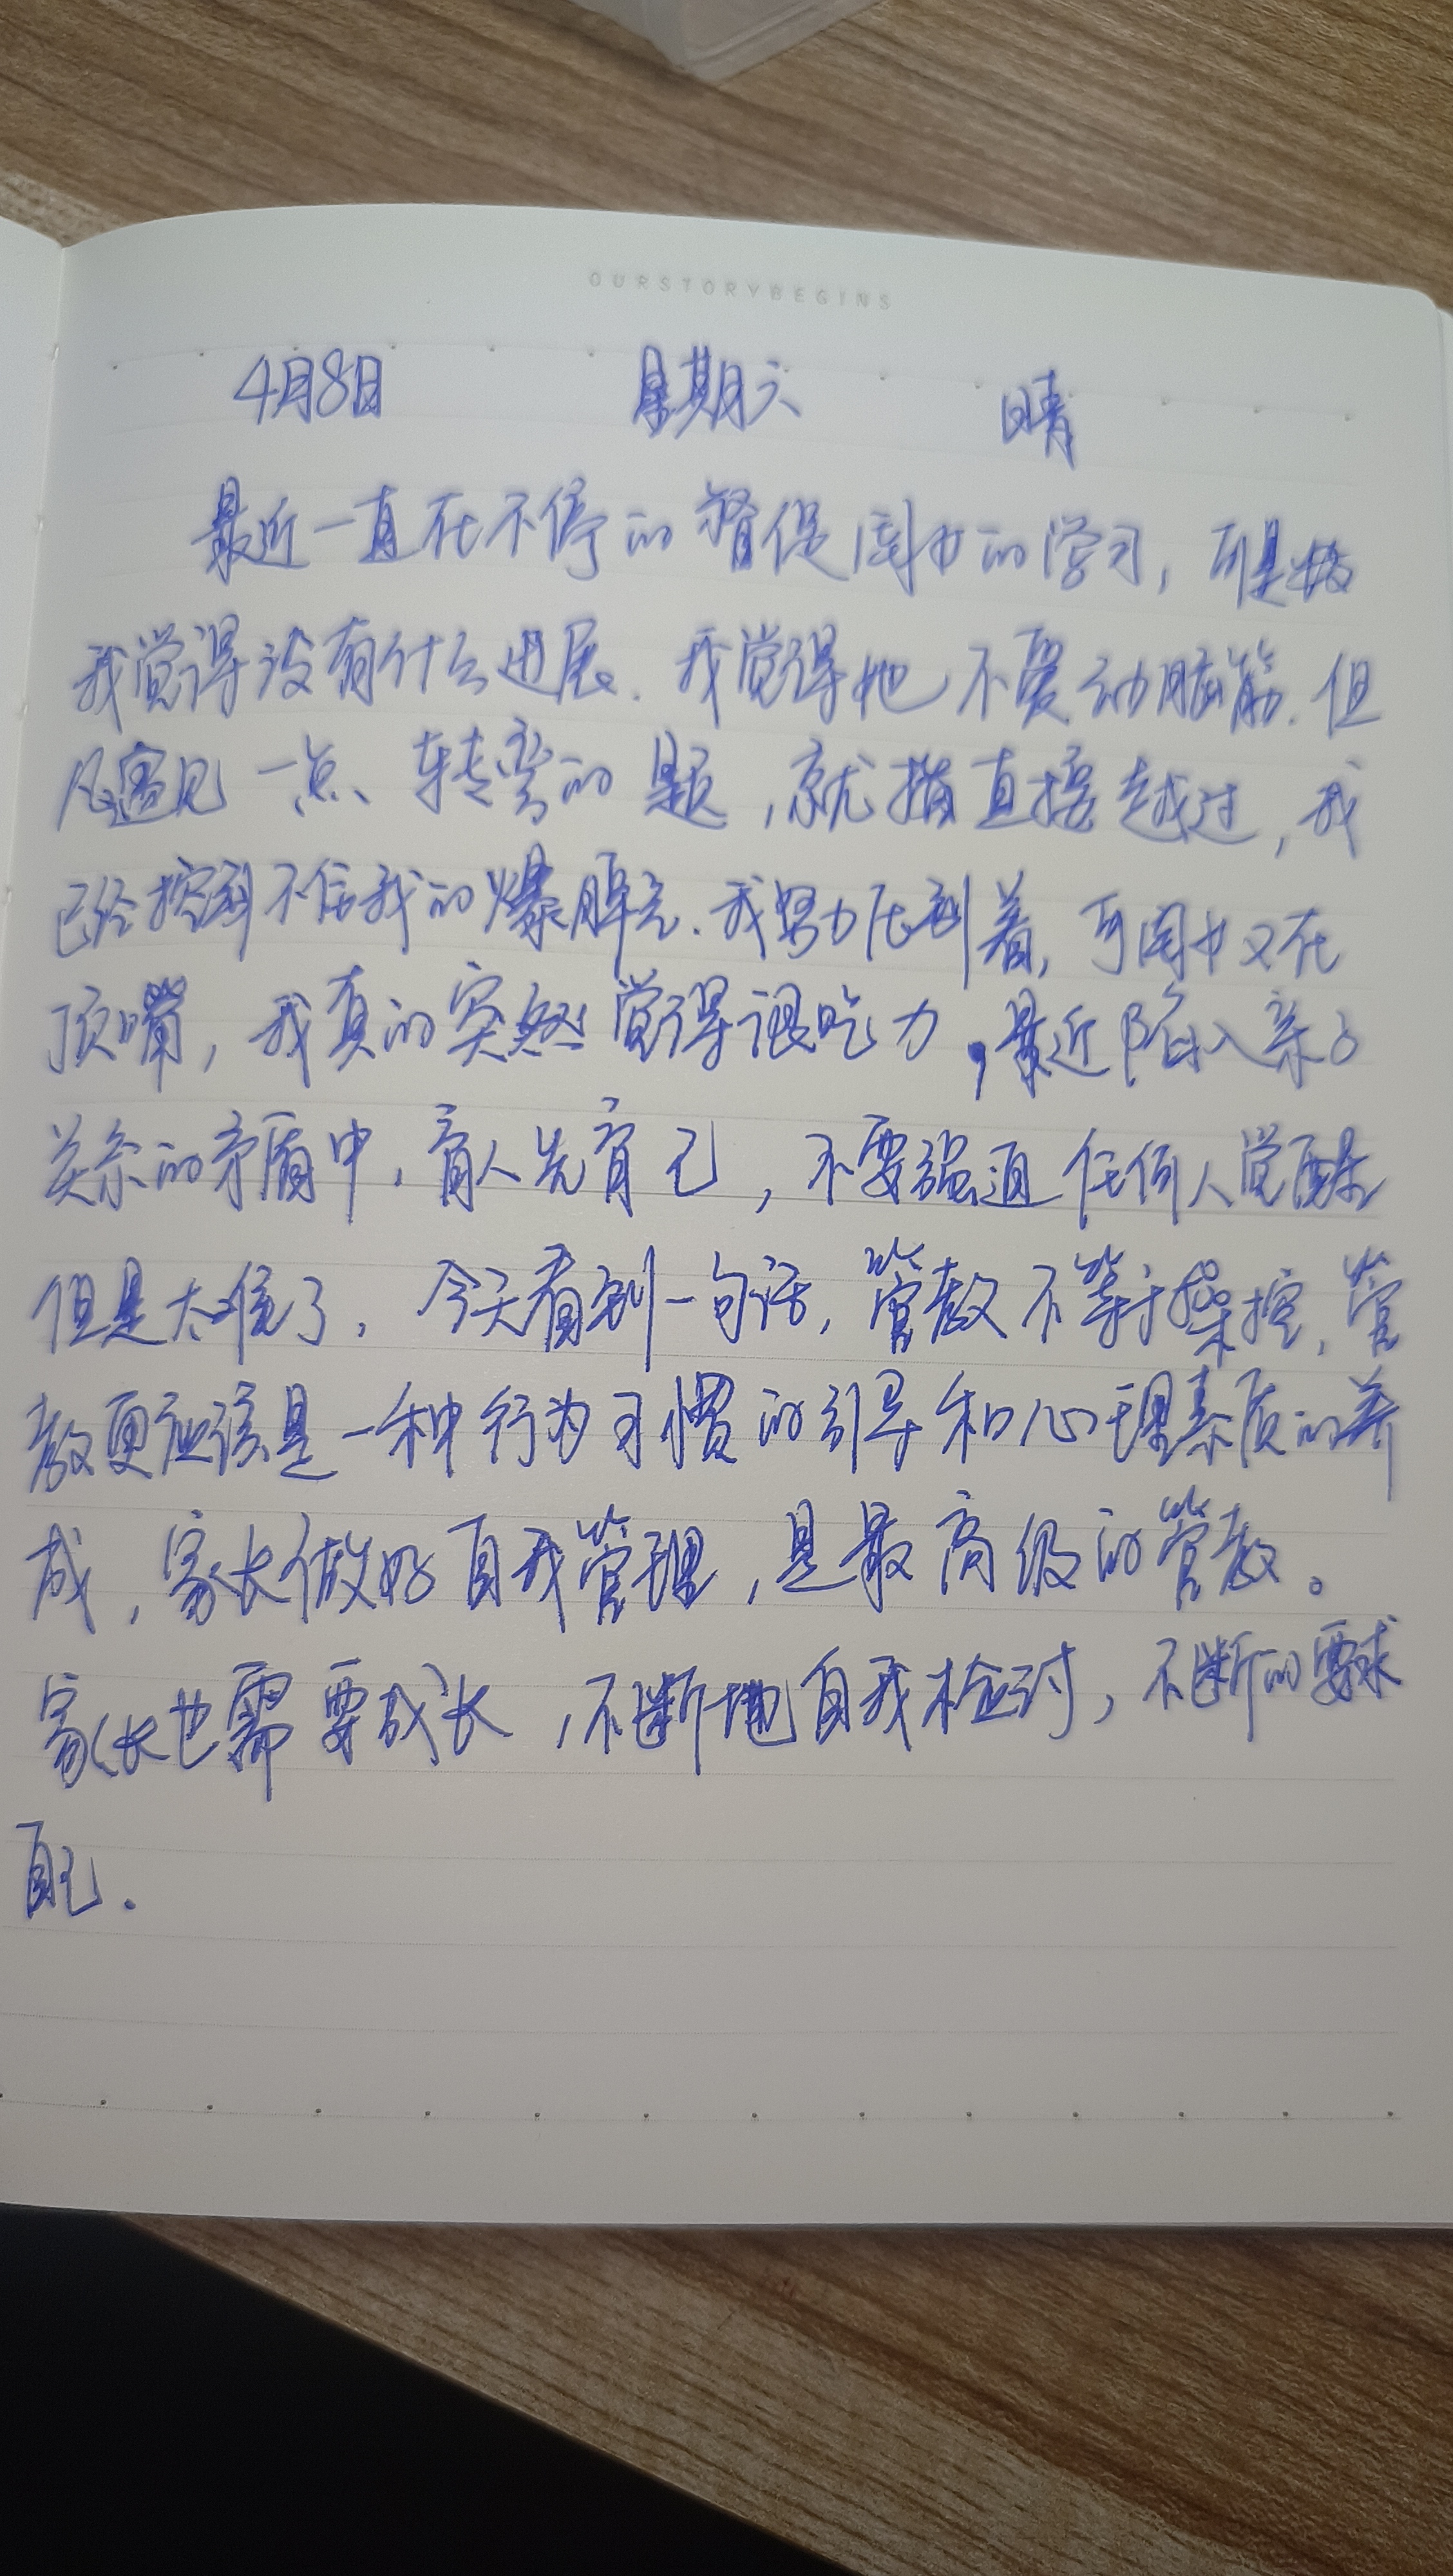 OURSTORYBEGINS
4月8日 星期六 晴
最近一直在不停的督促闺女的学习，可是
我觉得没有什么进展.我觉得她不爱动脑筋.但
凡遇见一点、转弯的题，就 直接越过，我
已经控制不住我的爆脾气.我努力压制着,可闺女又在
顶嘴，我真的突然觉得很吃力，最近陷入亲子
关系的矛盾中，育人先育己，不要强迫任何人觉醒
但是太难了，今天看到一句话，管教不等于操控，管
教更应该是一种行为习惯的引导和心理素质的养
成，家长做好自我管理，是最高级的管教。
家长也需要成长，不断地自我检讨，不断的要求
自己.